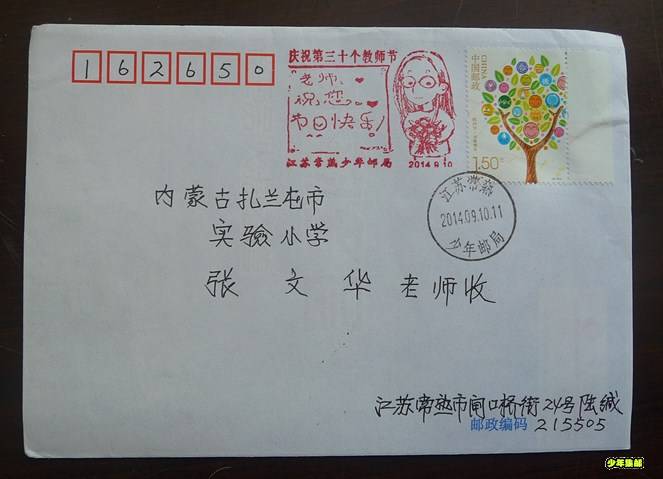 162650
庆祝第三十个教师节
老师、
祝您
节日快乐!
江苏常熟少年邮局 2014.9.10
中国邮政
CHINA
1.50元
江苏常熟
2014.09.10.11
少年邮局
内蒙古扎兰屯市
实验小学
张文华老师收
江苏常熟市闸口桥街24号陆缄
邮政编码 215505
少年集邮